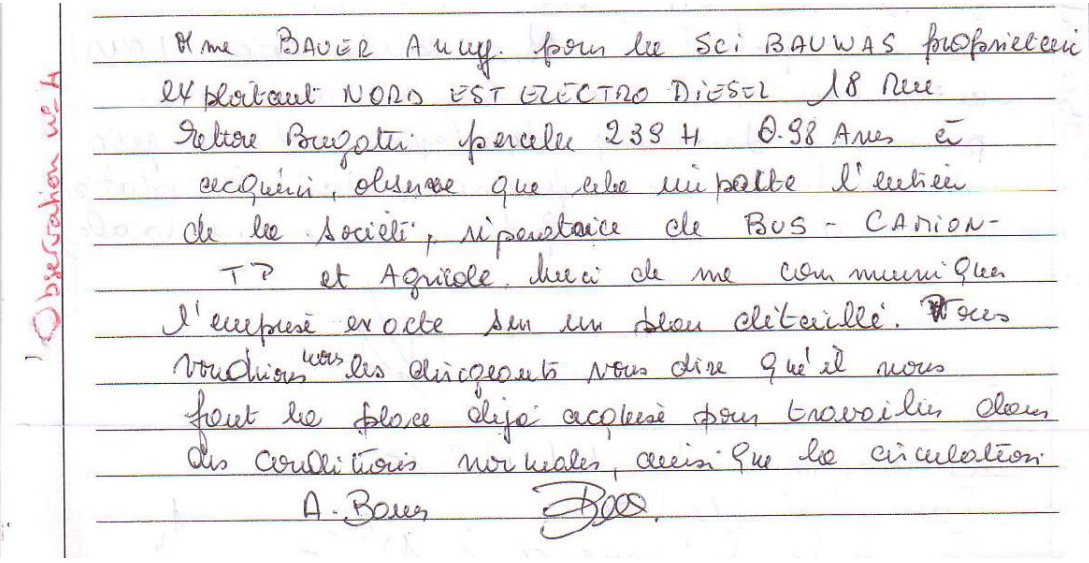 Observation n° 4
Mme BAUER Anny. pour la Sci BAUWAS propriétaire
exploitant NORD EST ELECTRO DIESEL 18 Rue
Ettore Bugatti parcelle 239 H 0.98 Ares à
acquérir, observe que cela impacte l'entrée
de la société, réparatrice de BUS - CAMION -
TP et Agricole. Merci de me communiquer
l'emprise exacte sur un plan détaillé. Nous
voudrions nous les dirigeants vous dire qu'il nous
faut la place déjà acquise pour travailler dans
des conditions normales, ainsi que la circulation
A. Bauer